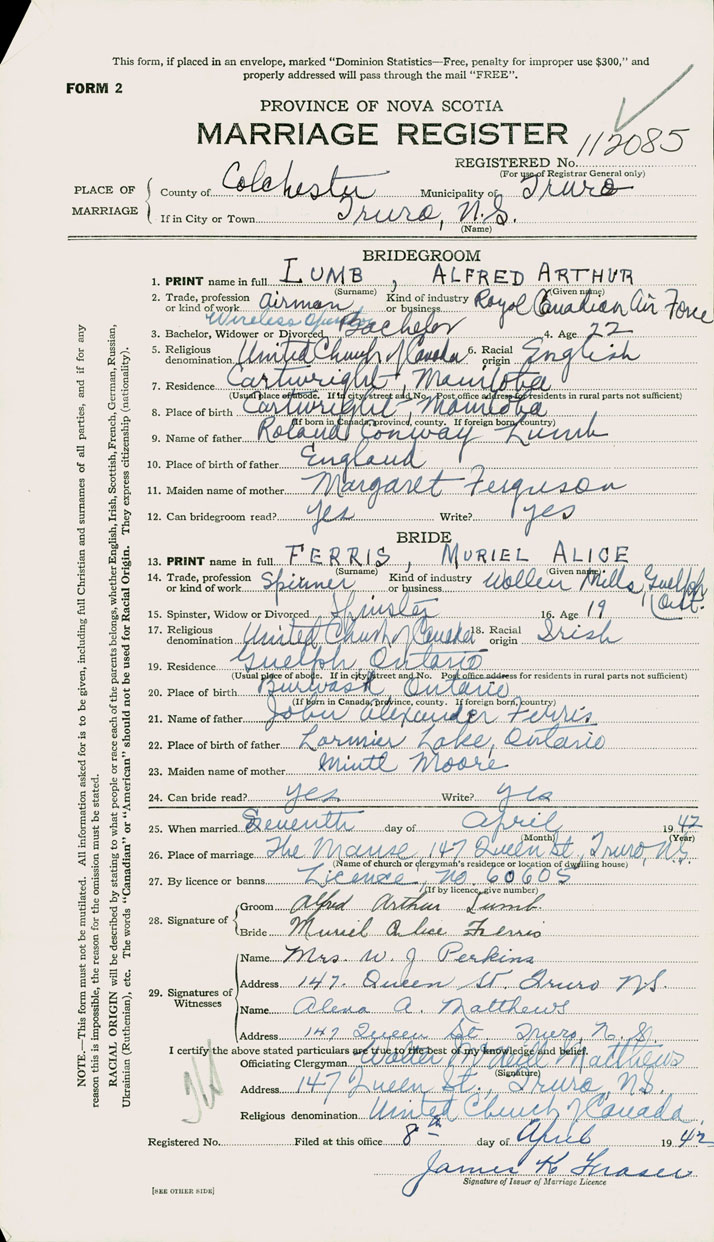 This form, if placed in an envelope, marked "Dominion Statistics—Free, penalty for improper use $300," and
properly addressed will pass through the mail "FREE".
FORM 2
PROVINCE OF NOVA SCOTIA
MARRIAGE REGISTER
112085
REGISTERED No.
(For use of Registrar General only)
PLACE OF MARRIAGE
County of Colchester Municipality of Truro
If in City or Town Truro, N.S.
(Name)
BRIDEGROOM
1. PRINT name in full LUMB, ALFRED ARTHUR
(Surname) (Given name)
2. Trade, profession or kind of work airman Kind of industry or business Royal Canadian Air Force
Wireless
3. Bachelor, Widower or Divorced Bachelor 4. Age 22
5. Religious denomination United Church of Canada 6. Racial origin English
7. Residence Cartwright, Manitoba
(Usual place of abode. If in city, street and No. Post office address for residents in rural parts not sufficient)
8. Place of birth Cartwright, Manitoba
(If born in Canada, province, county. If foreign born, country)
9. Name of father Roland Conway Lumb
10. Place of birth of father England
11. Maiden name of mother Margaret Ferguson
12. Can bridegroom read? yes Write? yes
BRIDE
13. PRINT name in full FERRIS, MURIEL ALICE
(Surname) (Given name)
14. Trade, profession or kind of work Spinner Kind of industry or business Wollen Mills, Guelph Ont.
15. Spinster, Widow or Divorced Spinster 16. Age 19
17. Religious denomination United Church of Canada 18. Racial origin Irish
19. Residence Guelph, Ontario
(Usual place of abode. If in city, street and No. Post office address for residents in rural parts not sufficient)
20. Place of birth Burwash, Ontario
(If born in Canada, province, county. If foreign born, country)
21. Name of father John Alexander Ferris
22. Place of birth of father Lormier Lake, Ontario
23. Maiden name of mother Moore
24. Can bride read? yes Write? yes
25. When married Seventh day of April 1942
(Month) (Year)
26. Place of marriage The Manse, 147 Queen St., Truro, N.S.
(Name of church or clergyman's residence or location of dwelling house)
27. By licence or banns Licence, no. 60605
(If by licence, give number)
28. Signature of
Groom Alfred Arthur Lumb
Bride Muriel Alice Ferris
29. Signatures of Witnesses
Name Mrs. W. J. Perkins
Address 147 Queen St. Truro N.S.
Name Alena A. Matthews
Address 147 Queen St. Truro, N.S.
I certify the above stated particulars are true to the best of my knowledge and belief.
Officiating Clergyman Walter Matthews
(Signature)
Address 147 Queen St., Truro, N.S.
Religious denomination United Church of Canada
Registered No. Filed at this office 8th day of April 1942
James K. Fraser
Signature of Issuer of Marriage Licence
[SEE OTHER SIDE]
NOTE.—This form must not be mutilated. All information asked for is to be given, including full Christian and surnames of all parties, and if for any
reason this is impossible, the reason for the omission must be stated.
RACIAL ORIGIN will be described by stating to what people or race each of the parents belongs, whether English, Irish, Scottish, French, German, Russian,
Ukrainian (Ruthenian), etc. The words "Canadian" or "American" should not be used for Racial Origin. They express citizenship (nationality).